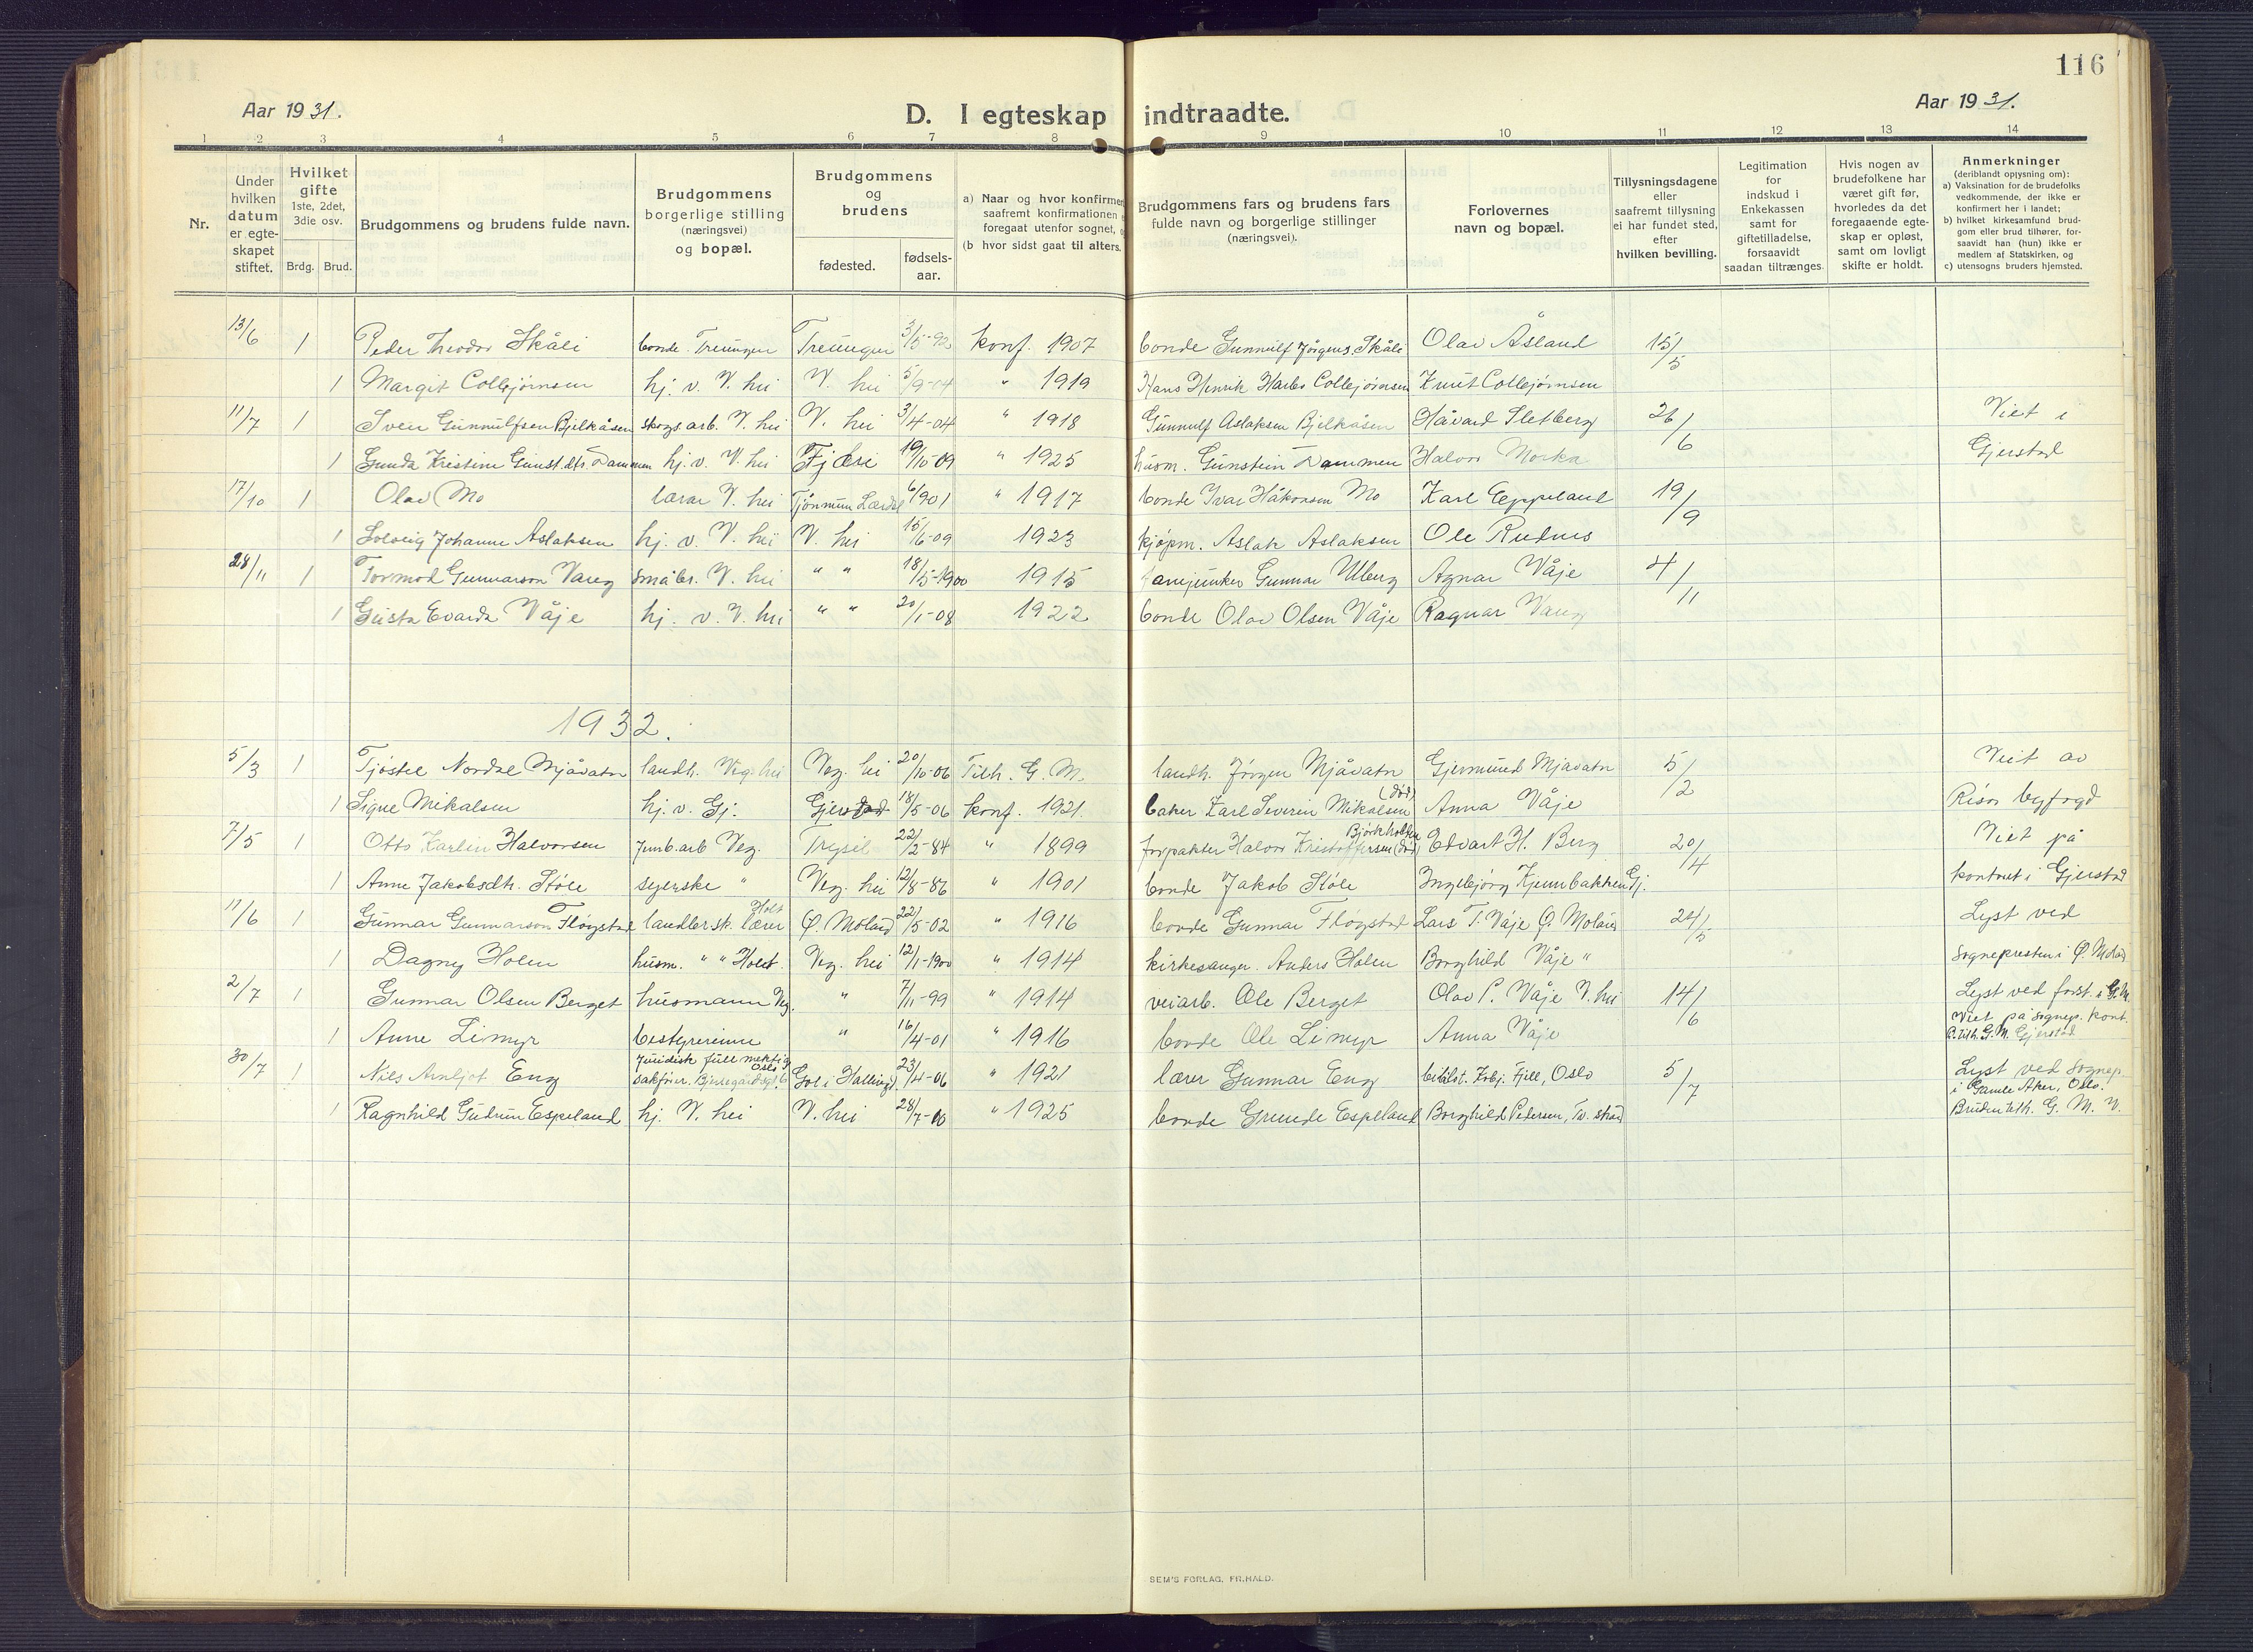 116
Aar 1931.
D. I egteskap indtraadte.
Aar 1931.
1 2 3 4 5 6 7 8 9 10 11 12 13 14
Nr.
Under hvilken datum er egteskapet stiftet.
Hvilket gifte 1ste, 2det, 3die osv.
Brdg. Brud.
Brudgommens og brudens fulde navn.
Brudgommens borgerlige stilling (næringsvei) og bopæl.
Brudgommens og brudens
fødested. fødselsaar.
a) Naar og hvor konfirmer
saafremt konfirmationen
foregaat utenfor sognet,
(b hvor sidst gaat til alters.
Brudgommens fars og brudens fars
fulde navn og borgerlige stillinger
(næringsvei).
Forlovernes
navn og bopæl.
Tillysningsdagene
eller
saafremt tillysning
ei har fundet sted,
efter
hvilken bevilling.
Legitimation
for
indskud i
Enkekassen
samt for
giftetilladelse,
forsaavidt
saadan tiltrænges.
Hvis nogen av
brudefolkene har
været gift før,
hvorledes da det
foregaaende egte-
skap er opløst,
samt om lovligt
skifte er holdt.
Anmerkninger
(deriblandt opjysning om):
a) Vaksination for de brudefolks
vedkommende, der ikke er
konfirmert her i landet;
b) hvilket kirkesamfund brud-
gom eller brud tilhører, for-
saavidt han (hun) ikke er
medlem af Statskirken, og
c) utensogns bruders hjemsted.
13/6 1 Peder Theodor Skåli bonde. Treungen Treungen 3/5-92 konf. 1907 bonde Gunnulf Jørgens. Skåli Olav Åsland 15/5
1 Margit Collejørnsen hj. v. V. hei V. hei 5/9-04 " 1919 Hans Henrik Harbo Collejørnsen Knut Collejørnsen
11/7 1 Svein Gunnulfsen Bjelkåsen skogsarb. V. hei V. hei 3/4-04 " 1918 Gunnulf Aslaksen Bjelkåsen Håvard Sletberg 26/6 Viet i
1 Gunda Kristine Gunst.dtr. Dammen hj. v. V. hei Fjære 19/10-09 " 1925 husm. Gunstein Dammen Halvor Morka Gjerstad
17/10 1 Olav Mo lærar V. hei Lærdal 6/901 " 1917 bonde Ivar Håkonsen Mo Karl Eppeland 19/9
1 Solveig Johanne Aslaksen hj. v. V. hei V. hei 15/6-09 1923 kjøpm. Aslak Aslaksen Ole Rudnes
28/11 1 Tormod Gunnarson Vareg småbr. V. hei " " 18/5-1900 1915 fanejunker Gunnar Uberg Agnar Våje 4/11
1 Gusta Evarda Våje hj. v. V. hei " " 20/1-08 1922 bonde Olav Olsen Våje Ragnar Vareg
1932.
5/3 1 Tjøstel Nordal Mjåvatn landh. Veg.hei Veg. hei 20/10-06 Tilh. G. M. landh. Jørgen Mjåvatn Gjermund Mjavatn 5/2 Viet av
1 Signe Mikalsen hj. v. Gj. Gjerstad 18/5-06 konf. 1921. baker Karl Severin Mikalsen (død) Anna Våje Risør byfogd
7/5 1 Otto Karlin Halvorsen jernb.arb Veg. Trysil 22/2-84 " 1899 forpakter Halvor Kristoffersen Bjørkholten (død) Edvart H. Berg 20/4 Viet på
1 Anne Jakobsdtr. Støle syerske " Veg. hei 12/8-86 " 1901 bonde Jakob Støle Ingebjørg Kjennbakken Gj. kontoret i Gjerstad
11/6 1 Gunnar Gunnarson Fløgstad landbr.sk. lærer Holt Ø. Moland 22/5-02 " 1916 bonde Gunnar Fløgstad Lars T. Våje Ø. Moland 24/5 Lyst ved
1 Dagny Holen husm. " " Holt. Veg. hei 12/1-1900 " 1914 kirkesanger. Anders Holen Borghild Våje " Sognepresten i Ø. Moland
2/7 1 Gunnar Olsen Berget husmann Veg. " 7/11-99 " 1914 veiarb. Ole Berget Olav P. Våje V. hei 14/6 Lyst ved forst. i G.M.
1 Anne Limyr bestyrerinne " 16/4-01 " 1916 bonde Ole Limyr Anna Våje Viet på sognep. kont. B. tilh. G. M. Gjerstad
30/7 1 Nils Arnljot Eng Juridisk fullmektig sakfører. Oslo Gol i Hallingd 23/4-06 " 1921 lærer Gunnar Eng Fjell, Oslo 5/7 Lyst ved Sognep. i Gamle Aker, Oslo.
1 Ragnhild Gudrun Espeland hj. V. hei V. hei 28/7-10 " 1925 bonde Grunde Espeland Borghild Pedersen, Tv. strand Bruden tilh. G. M. V.
SEM'S FORLAG, FR.HALD.